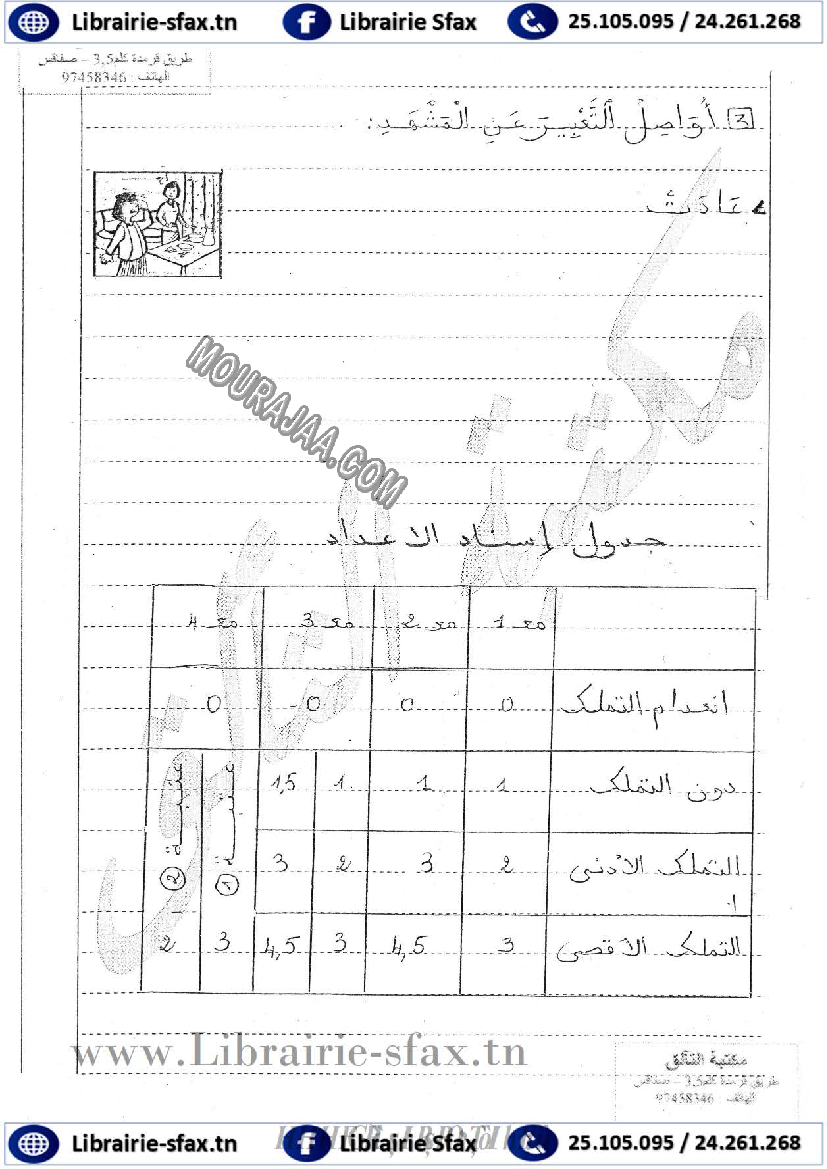 Librairie-sfax.tn Librairie Sfax 25.105.095 / 24.261.268
طريق قرمدة كلم3,5 – صفاقس
الهاتف : 97458346
3 أُوَاصِلُ التَّعْبِيرَ عَنِ الْمَشْهَدِ:
عَادَتْ
MOURAJAA.COM
جدول إسناد الاعداد
مع 1 مع 2 مع 3 مع 4
انعدام التملك 0 0 0 0
دون التملك 1 1 1 1,5 عتبة 1 عتبة 2
التملك الأدنى 2 3 2 3
التملك الأقصى 3 4,5 3 4,5 3 2
www.Librairie-sfax.tn
مكتبة التألق
طريق قرمدة كلم3,5 – صفاقس
الهاتف : 97458346
Librairie-sfax.tn Librairie Sfax 25.105.095 / 24.261.268